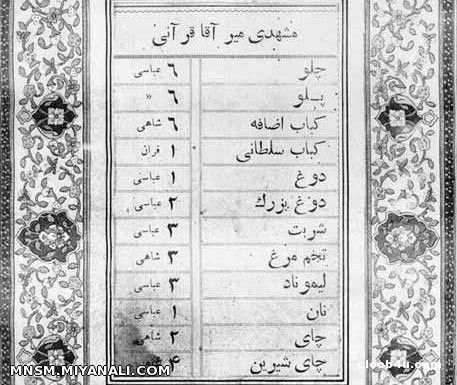 مشهدی میر آقا قرآنی
چلو ۶ عباسی
پلو ۶ "
کباب اضافه ۶ شاهی
کباب سلطانی ۱ قران
دوغ ۱ عباسی
دوغ بزرگ ۲ عباسی
شربت ۳ عباسی
تخم مرغ ۳ شاهی
لیموناد ۳ عباسی
نان ۱ عباسی
چای ۲ شاهی
چای شیرین ۴
MNSM.MIYANALI.COM